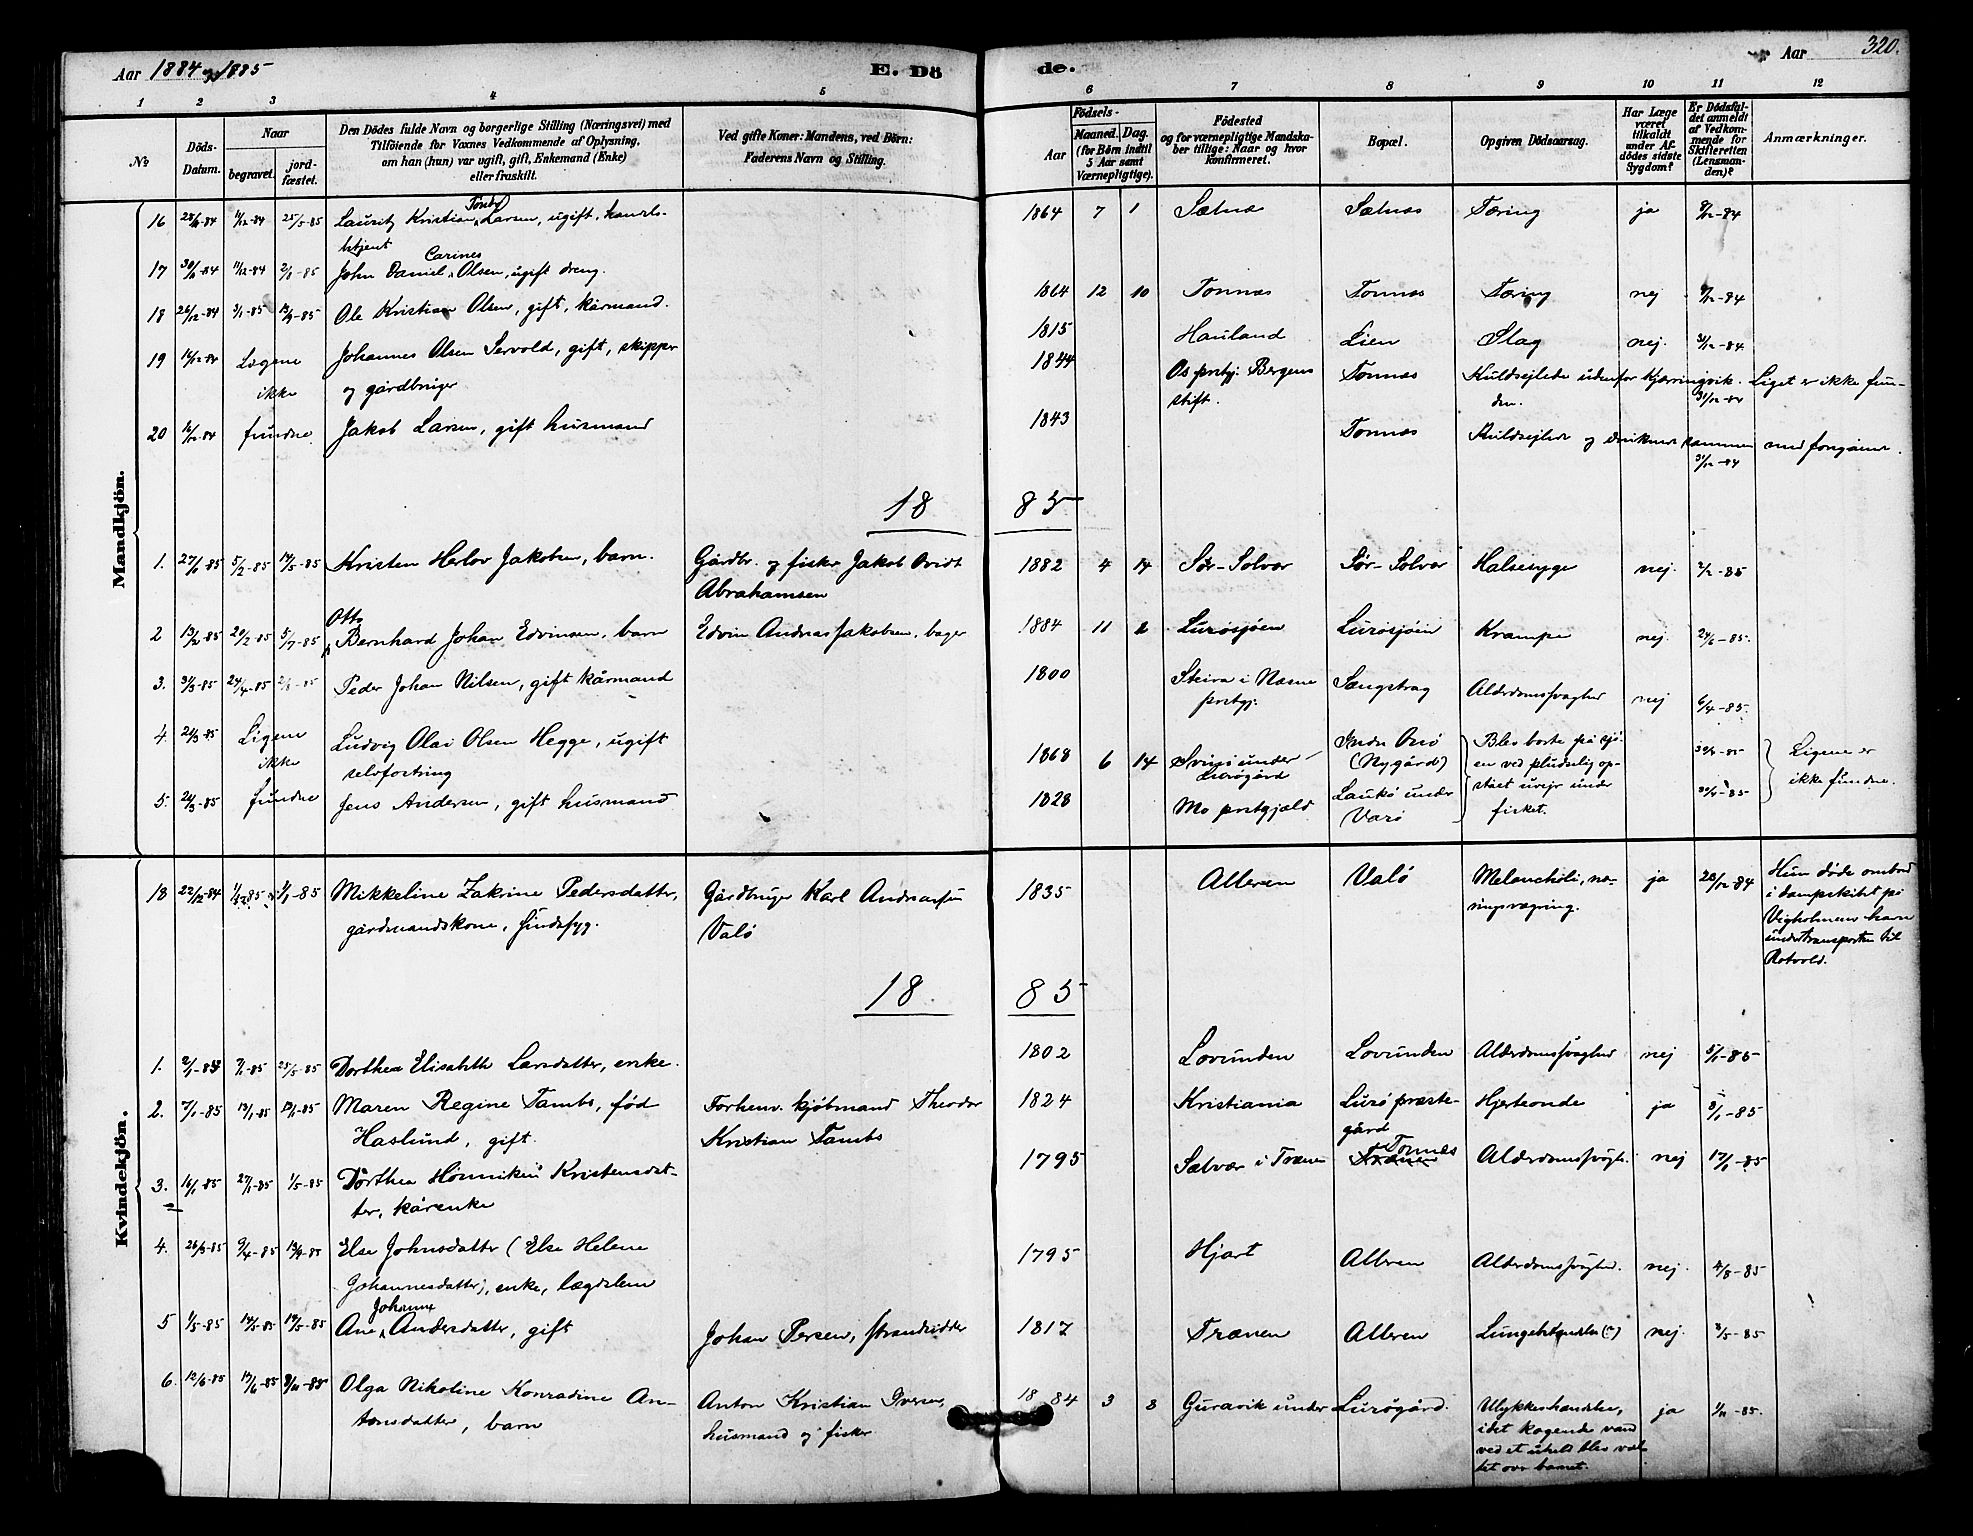 Aar 1884 og 1885
E. Dö
de.
Aar
320.
1 2 3 4 5 6 7 8 9 10 11 12
No
Döds-
Datum.
Naar
begravet.
jord-
fæstet.
Den Dödes fulde Navn og borgerlige Stilling (Næringsvei) med
Tilföiende for Voxnes Vedkommende af Oplysning,
om han (hun) var ugift, gift, Enkemand (Enke)
eller fraskilt.
Ved gifte Koner: Mandens, ved Börn:
Faderens Navn og Stilling.
Födsels-
Aar
Maaned. Dag.
(for Børn indtil
5 Aar samt
Værnepligtige).
Födested
og for værnepligtige Mandska-
ber tillige: Naar og hvor
Konfirmeret.
Bopæl.
Opgiven Dödsaarsag.
Har Læge
været
tilkaldt
under Af-
dödes sidste
Sygdom?
Er Dödsfal-
det anmeldt
af Vedkom-
mende for
Skifteretten
(Lensman-
den)?
Anmærkninger.
Mandkjön.
16 4/12-84 25/5-85 Lauritz Kristian Larsen, ugift, handels-
betjent 1864 7 1 Selnæs Selnæs Tæring ja 9/12-84
17 11/12-84 2/8-85 John Daniel Carines Olsen, ugift dreng. 1864 12 10 Tonnæs Tonnæs Tæring nej 9/12-84
18 26/12-84 3/1-85 13/9-85 Ole Kristian Olsen, gift, kårmand. 1815 Hauland Lien Slag nej. 31/12-84
19 Ligene
ikke Johannes Olsen Servold, gift, skipper
og gårdbruger 1844 Os prstgj. Bergens
stift. Tonnæs Kuldsejlede udenfor Kjærringvik. Liget er ikke fun-
den. 31/12-84
20 fundne. Jakob Larsen, gift husmand 1843 Tonnæs Kuldsejlede og druknede sammen med forgående.
31/12-84
18 85
1. 27/1-85 5/2-85 14/5-85 Kristen Herlov Jakobsen, barn. Gårdbr. og fisker Jakob Ovidt
Abrahamsen 1882 4 14 Sør-Solvær Sør-Solvær Halsesyge nej. 2/2-85
2 13/2-85 20/2-85 5/7-85 Otto Bernhard Johan Edvinsen, barn Edvin Andreas Jakobsen, bager 1884 11 2 Lurøsjøen Lurøsjøen Krampe nej. 24/6-85.
3. 31/3-85 24/4-85 2/8-85 Peder Johan Nilsen, gift kårmand 1800 Steira i Næsne
prstgj. Sengskrag Alderdomssvaghed nej 6/4-85.
4. 24/3-85 Ligene
ikke Ludvig Olai Olsen Hegge, ugift
selvfostring 1868 6 14 Svinø under
Lurøgård Indre Onø
(Nygård) Blev borte på sjø-
en ved pludselig op-
stået uvejr under
fisket. 30/4-85 Ligene er
ikke fundne.
5. 24/3-85 fundne Jens Andersen, gift husmand 1828 Mo prstgjæld Laukø under
Varø 30/4-85
Kvindekjön.
18 22/12-84 1/1-85 Mikkeline Zakrine Pedersdatter,
gårdmandskone, sindssyg. Gårdbruger Karl Andreassen
Valø 1835 Alleren Valø Melancholi, næ-
ringsvægring. ja 28/12-84 Hun døde ombord
i dampskibet på
Vigholmens havn
under transporten til
Rotvold.
18. 85
1. 2/1-85 7/1-85 25/5-85 Dorthea Elisabeth Larsdatter, enke. 1802 Lovunden Lovunden Alderdomssvaghed nej 5/1-85
2. 7/1-85 13/1-85 13/1-85 Maren Regine Tambs, fød
Haslund, gift. Forhenv. kjøbmand Theodor
Kristian Tambs 1824 Kristiania Lurø præste-
gård Hjerteonde ja 8/1-85
3. 16/1-85 27/1-85 1/5-85 Dorthea Hennikin Kristensdat-
ter, kårenke 1795 Selvær i Træna Trænen Tonnæs Alderdomssvagh. nej 17/1-85
4. 26/3-85 9/4-85 13/9-85 Else Johnsdatter (Else Helene
Johannesdatter), enke, lægdslem 1795 Hjart Alleren Alderdomssvaghed. nej. 4/8-85
5 1/5-85 14/5-85 14/5-85 Ane Johanne Andersdatter, gift Johan Persen, strandsidder 1817 Trænen Alleren Lungebetændelse (?) nej. 3/5-85
6. 12/6-85 17/6-85 8/11-85 Olga Nikoline Konradine An-
tonsdatter, barn Anton Kristian Iversen,
husmand og fisker 1884 3 8 Guravik under Lurøgård. Ulykkeshændelse,
idet kogende vand
ved et uheld blev væl-
tet over barnet. ja 1/11-85.